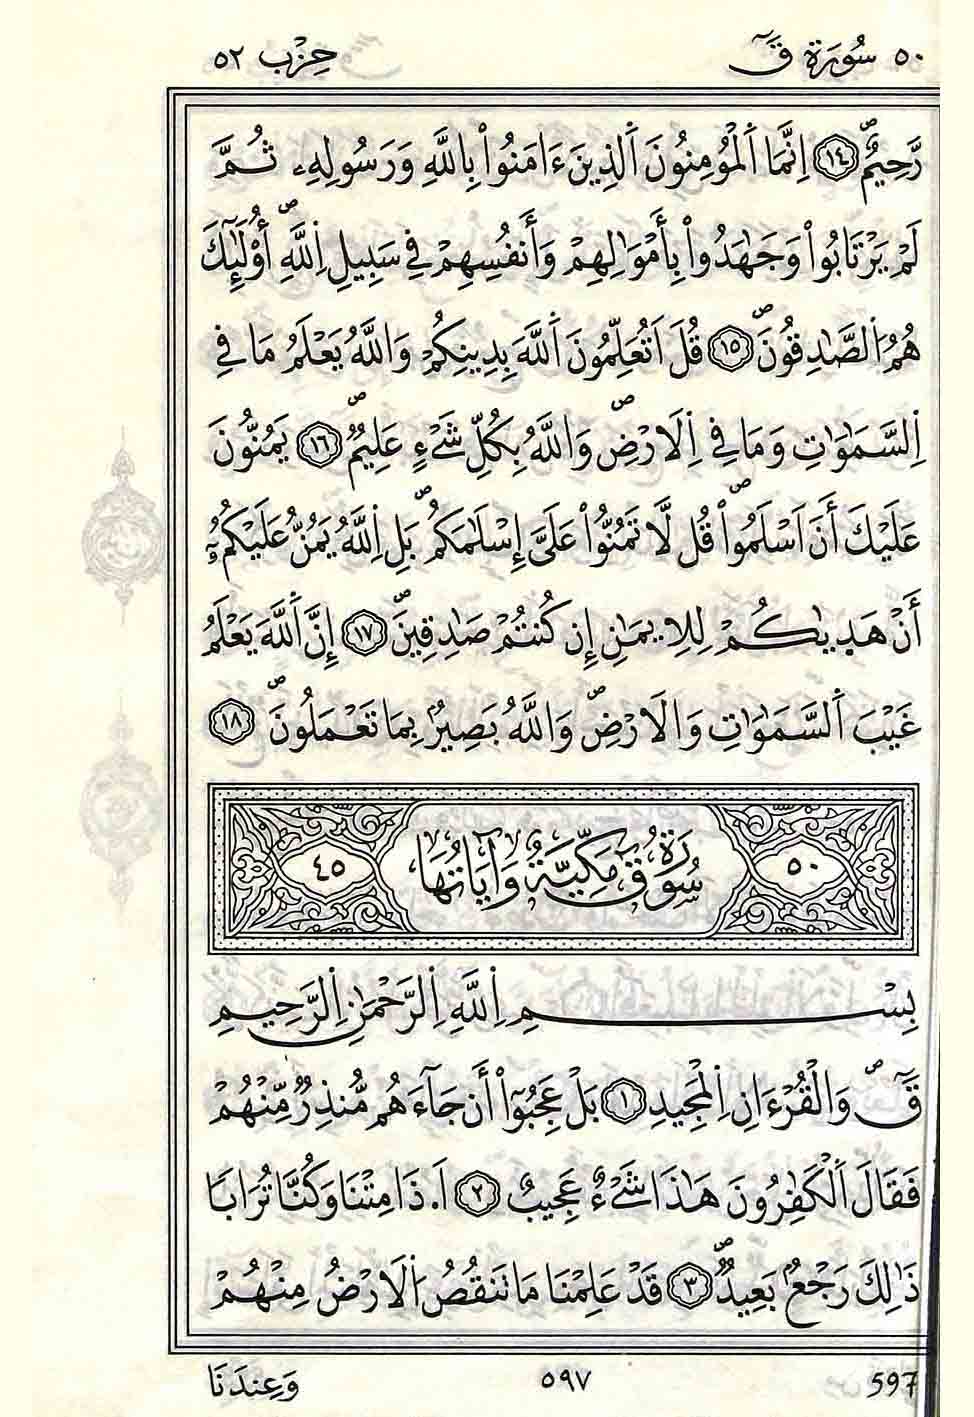 ٥٠ سُورَةُ قٓ حِزْب ٥٢
رَّحِيمٌۖ ١٤ اِنَّمَا اَ۬لْمُؤْمِنُونَ اَ۬لذِينَ ءَامَنُواْ بِاللَّهِ وَرَسُولِهِۦ ثُمَّ
لَمْ يَرْتَابُواْ وَجَٰهَدُواْ بِأَمْوَٰلِهِمْ وَأَنفُسِهِمْ فِے سَبِيلِ اِ۬للَّهِۖ أُوْلَٰٓئِكَ
هُمُ اُ۬لصَّٰدِقُونَۖ ١٥ قُلَ اَتُعَلِّمُونَ اَ۬للَّهَ بِدِينِكُمْ وَاللَّهُ يَعْلَمُ مَا فِے
اِ۬لسَّمَٰوَٰتِ وَمَا فِے اِ۬لَارْضِۖ وَاللَّهُ بِكُلِّ شَےْءٍ عَلِيمٌۖ ١٦ يَمُنُّونَ
عَلَيْكَ أَنَ اَسْلَمُواْۖ قُل لَّا تَمُنُّواْ عَلَيَّ إِسْلَٰمَكُمۖ بَلِ اِ۬للَّهُ يَمُنُّ عَلَيْكُمُۥٓ
أَنْ هَدٜيٰكُمْ لِلِايمَٰنِ إِن كُنتُمْ صَٰدِقِينَۖ ١٧ إِنَّ اَ۬للَّهَ يَعْلَمُ
غَيْبَ اَ۬لسَّمَٰوَٰتِ وَالَارْضِۖ وَاللَّهُ بَصِيرُۢ بِمَا تَعْمَلُونَۖ ١٨
٥٠ سُورَةُ قٓ مَكِّيَّةٌ وَآيَاتُهَا ٤٥
بِسْمِ اِ۬للَّهِ اِ۬لرَّحْمَٰنِ اِ۬لرَّحِيمِ
قَٓۖ وَالْقُرْءَانِ اِ۬لْمَجِيدِ ١ بَلْ عَجِبُوٓاْ أَن جَآءَهُم مُّنذِرٌ مِّنْهُمْ
فَقَالَ اَ۬لْكَٰفِرُونَ هَٰذَا شَےْءٌ عَجِيبٌ ٢ اَ.ذَا مِتْنَا وَكُنَّا تُرَابًا
ذَٰلِكَ رَجْعُۢ بَعِيدٌۖ ٣ قَدْ عَلِمْنَا مَا تَنقُصُ اُ۬لَارْضُ مِنْهُمْ
597 ٥٩٧ وَعِندَنَا